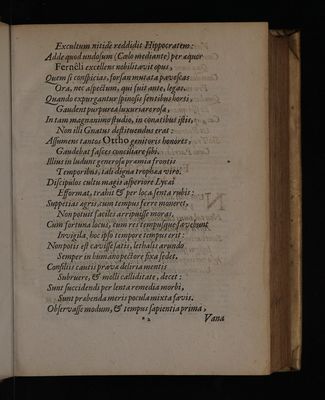 Excultum nitidè reddidit Hippocratem:
Adde quod undosum (Cœlo mediante) per æquor
Fernêli excellens nobilitavit opus,
Quem si conspicias, forsan mutata pavescas
Ora, nec aspectum, qui fuit ante, legas.
Quando expurgantur spinosis sentibus horti,
Gaudent purpureâ luxuriare rosâ,
In tam magnanimo studio, in conatibus istis,
Non illi Gnatus destituendus erat:
Assument tantos Ottho genitoris honores,
Gaudebat fasces conciliare sibi.
Illius in ludunt generosa præmia frontis
Temporibus, tali digna trophæa viro.
Discipulos cultu magis asperiore Lycæi
Efformat, trahit & per loca senta rubis:
Suppetias agris cum tempus ferre moneret,
Non potuit faciles arripuisse moras.
Cum fortuna locus, cum res tempusque favebunt
Invigila, hoc ipso tempore tempus erit:
Non potis est cavisse satis, lethalis arundo
Semper in humano pectore fixa sedet.
Consiliis cautis prava deliria mentis
Subruere, & molli calliditate, decet:
Sunt succidendi per lenta remedia morbi,
Sunt præbenda meris pocula mixta favis.
Observasse modum, & tempus sapientia prima,
* 2 Vana